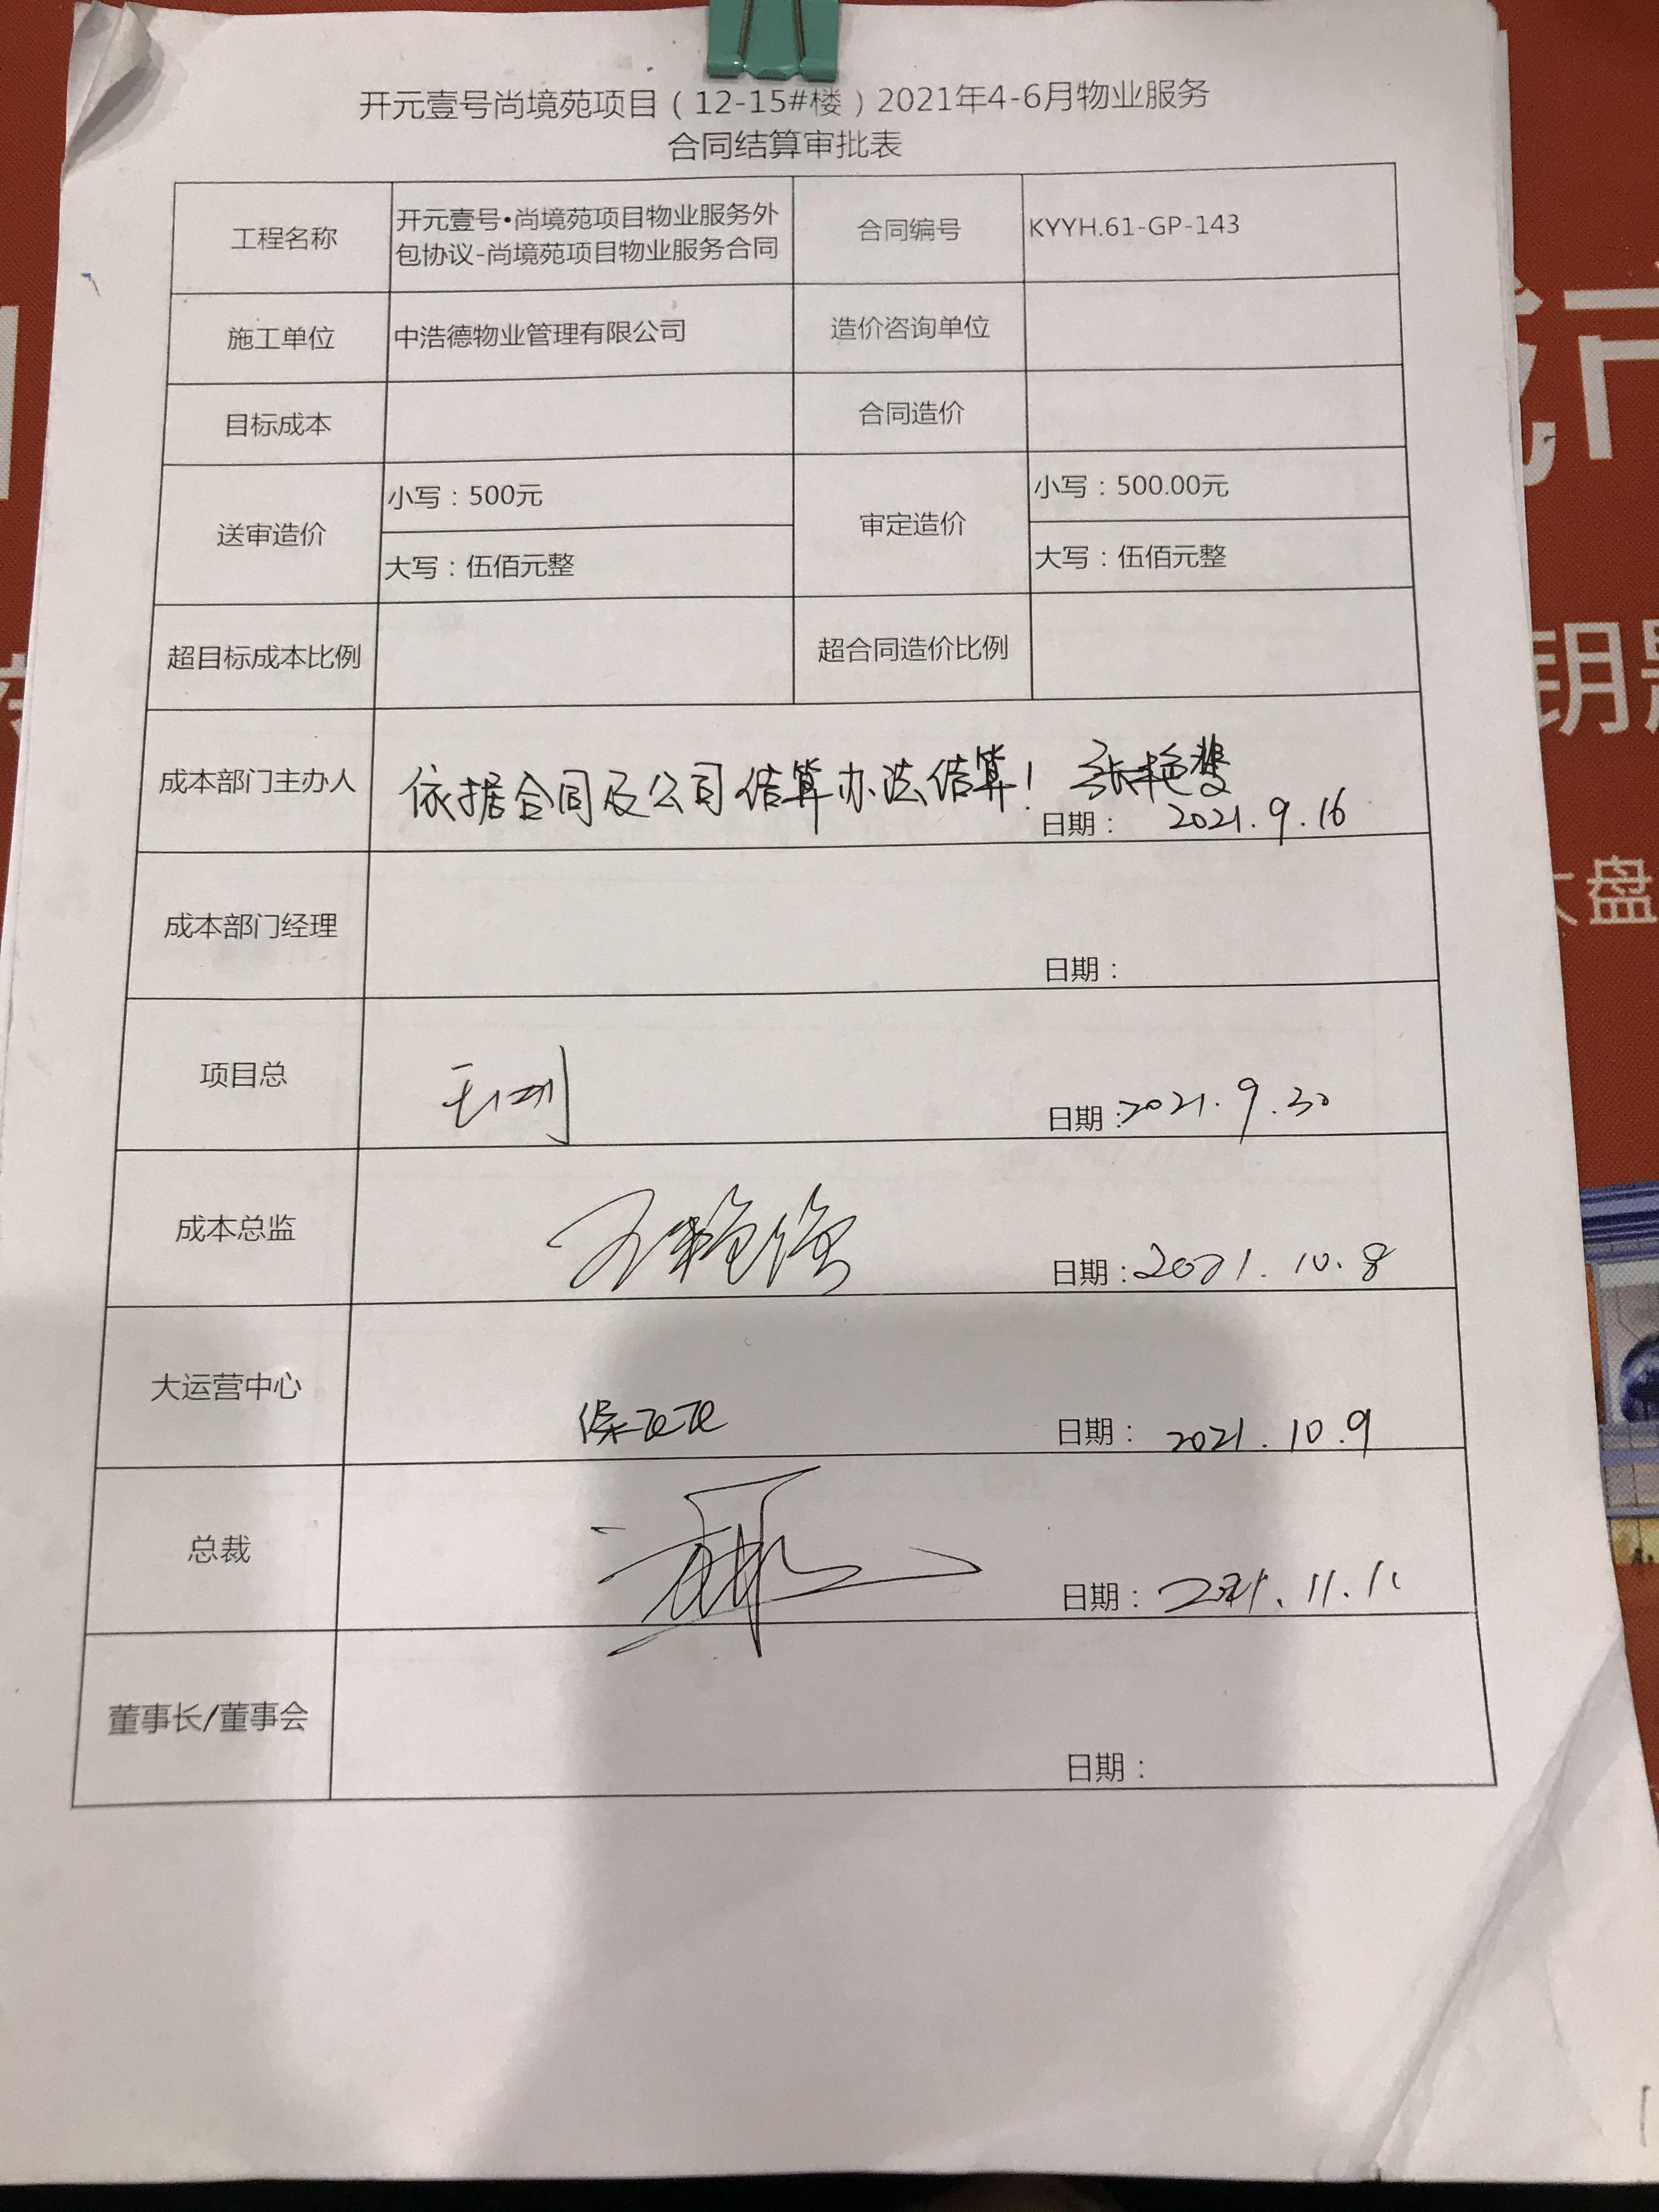 开元壹号尚境苑项目（12-15#楼）2021年4-6月物业服务
合同结算审批表
工程名称
开元壹号•尚境苑项目物业服务外
包协议-尚境苑项目物业服务合同
合同编号
KYYH.61-GP-143
施工单位
中浩德物业管理有限公司
造价咨询单位
目标成本
合同造价
送审造价
小写：500元
大写：伍佰元整
审定造价
小写：500.00元
大写：伍佰元整
超目标成本比例
超合同造价比例
成本部门主办人
依据合同及公司结算办法结算！
日期： 2021.9.16
成本部门经理
日期：
项目总
日期：2021.9.30
成本总监
日期：2021.10.8
大运营中心
日期： 2021.10.9
总裁
日期：2021.11.11
董事长/董事会
日期：
大盘